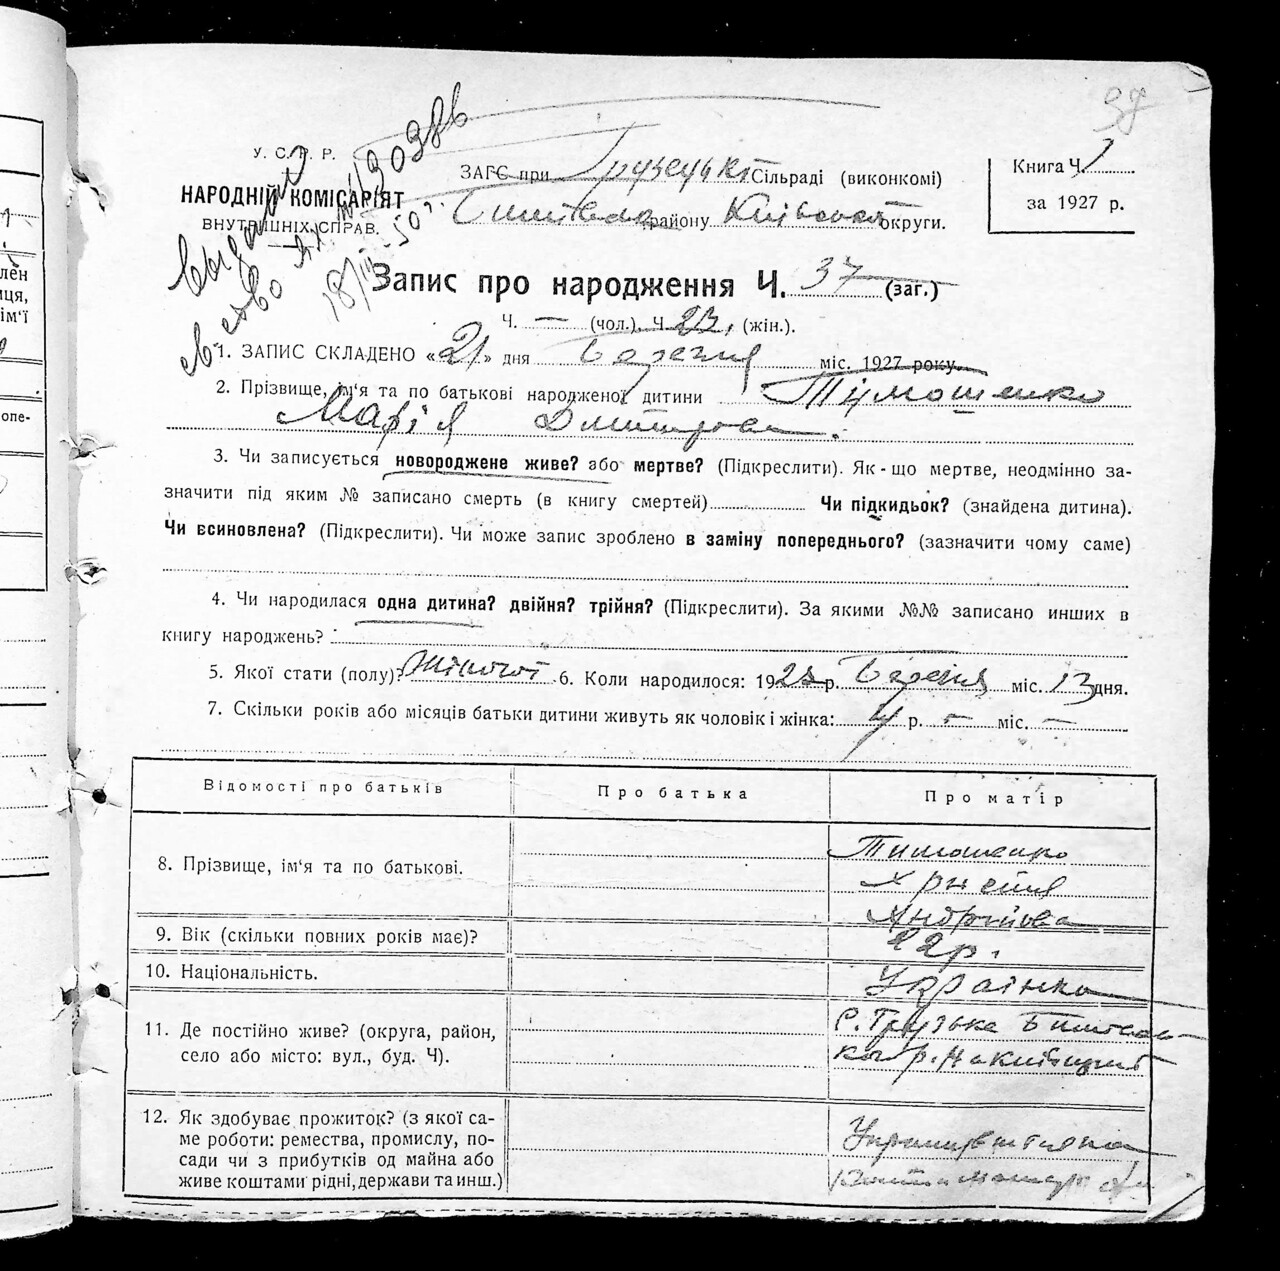 39
У. С. Р. Р.
НАРОДНІЙ КОМІСАРІЯТ
ВНУТРІШНІХ СПРАВ.
ЗАГС при Грузській Сільраді (виконкомі)
району Київської округи.
Книга Ч. 1
за 1927 р.
Запис про народження Ч. 37 (заг.)
Ч. — (чол.). Ч. 23. (жін.).
1. ЗАПИС СКЛАДЕНО «21» дня Березня міс. 1927 року.
2. Прізвище, ім'я та по батькові народженої дитини Тимошенко
Марія Дмитрова.
3. Чи записується новороджене живе? або мертве? (Підкреслити). Як-що мертве, неодмінно за-
значити під яким № записано смерть (в книгу смертей) Чи підкидьок? (знайдена дитина).
Чи всиновлена? (Підкреслити). Чи може запис зроблено в заміну попереднього? (зазначити чому саме)
4. Чи народилася одна дитина? двійня? трійня? (Підкреслити). За якими №№ записано инших в
книгу народжень?
5. Якої стати (полу)? жіночої 6. Коли народилося: 19 р. Березня міс. 13 дня.
7. Скільки років або місяців батьки дитини живуть як чоловік і жінка: 4 р. — міс. —
Відомості про батьків Про батька Про матір
8. Прізвище, ім'я та по батькові. Тимошенко
Христя
Андрійова
9. Вік (скільки повних років має)? 22 р.
10. Національність. Українка
11. Де постійно живе? (округа, район,
село або місто: вул., буд. Ч).
с. Грузьке
12. Як здобуває прожиток? (з якої са-
ме роботи: ремества, промислу, по-
сади чи з прибутків од майна або
живе коштами рідні, держави та инш.)